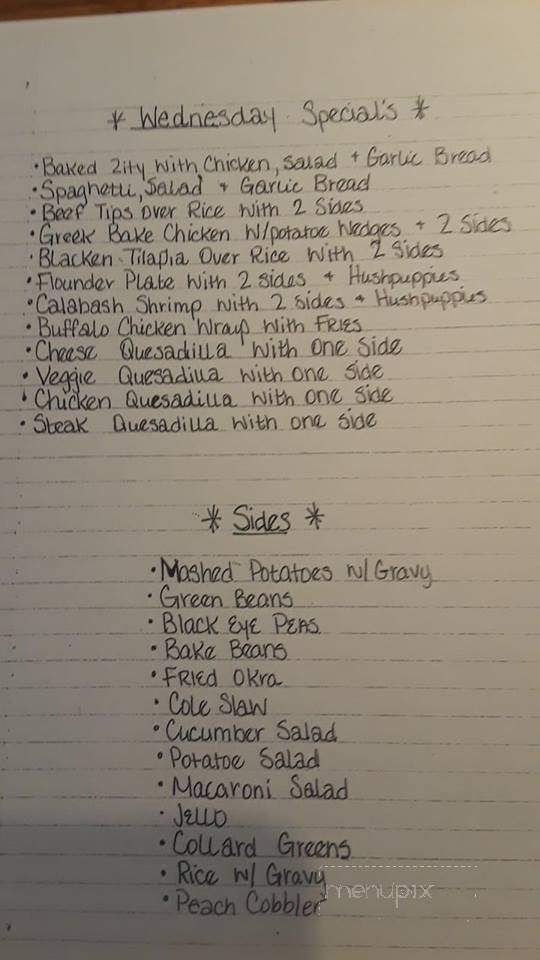 * Wednesday Special's *
• Baked Zity with Chicken, Salad + Garlic Bread
• Spaghetti, Salad + Garlic Bread
• Beef Tips over Rice with 2 Sides
• Greek Bake Chicken w/potatoe wedges + 2 Sides
• Blacken Tilapia Over Rice with 2 Sides
• Flounder Plate with 2 sides + Hushpuppies
• Calabash Shrimp with 2 sides + Hushpuppies
• Buffalo Chicken Wrap with FRIES
• Cheese Quesadilla with one side
• Veggie Quesadilla with one side
• Chicken Quesadilla with one side
• Steak Quesadilla with one side
* Sides *
• Mashed Potatoes w/Gravy
• Green Beans
• Black Eye Peas
• Bake Beans
• FRIED OKra
• Cole Slaw
• Cucumber Salad
• Potatoe Salad
• Macaroni Salad
• Jello
• Collard Greens
• Rice w/ Gravy
• Peach Cobbler
menupix